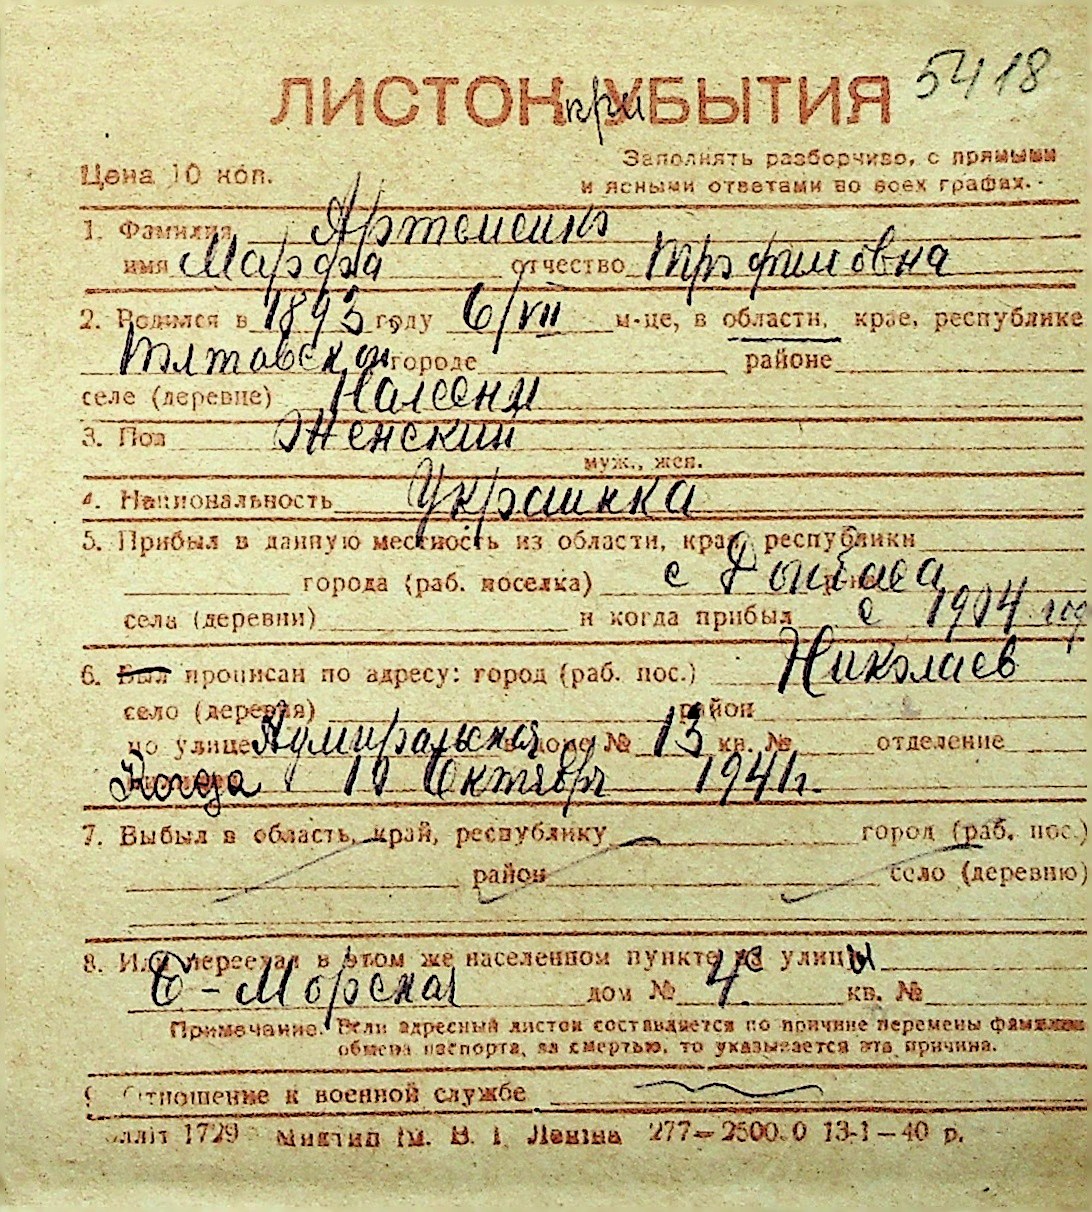 5418
ЛИСТОК при УБЫТИЯ
Цена 10 коп.
Заполнять разборчиво, с прямыми
и ясными ответами во всех графах.
1. Фамилия Артеменко
имя Марфа отчество Трофимовна
2. Родился в 1893 году 6/VII м-це, в области, крае, республике
Полтавской городе районе
селе (деревне)
3. Пол Женский
муж., жен.
4. Национальность Украинка
5. Прибыл в данную местность из области, края, республики
города (раб. поселка) с Донбаса
села (деревни) и когда прибыл с 1904 год
6. Был прописан по адресу: город (раб. пос.) Николаев
село (деревня) район
по улице Адмиральская в доме № 13 кв. № отделение
Когда 10 Октября 1941 г.
7. Выбыл в область, край, республику город (раб. пос.)
район село (деревню)
8. Или переехал в этом же населенном пункте с улицы
Б-Морская дом № 4 кв. №
Примечание. Если адресный листок составляется по причине перемены фамилии
обмена паспорта, за смертью, то указывается эта причина.
9. Отношение к военной службе
лліт 1729 Миктип ім. В. І. Леніна 277—2500.0 13-1—40 р.